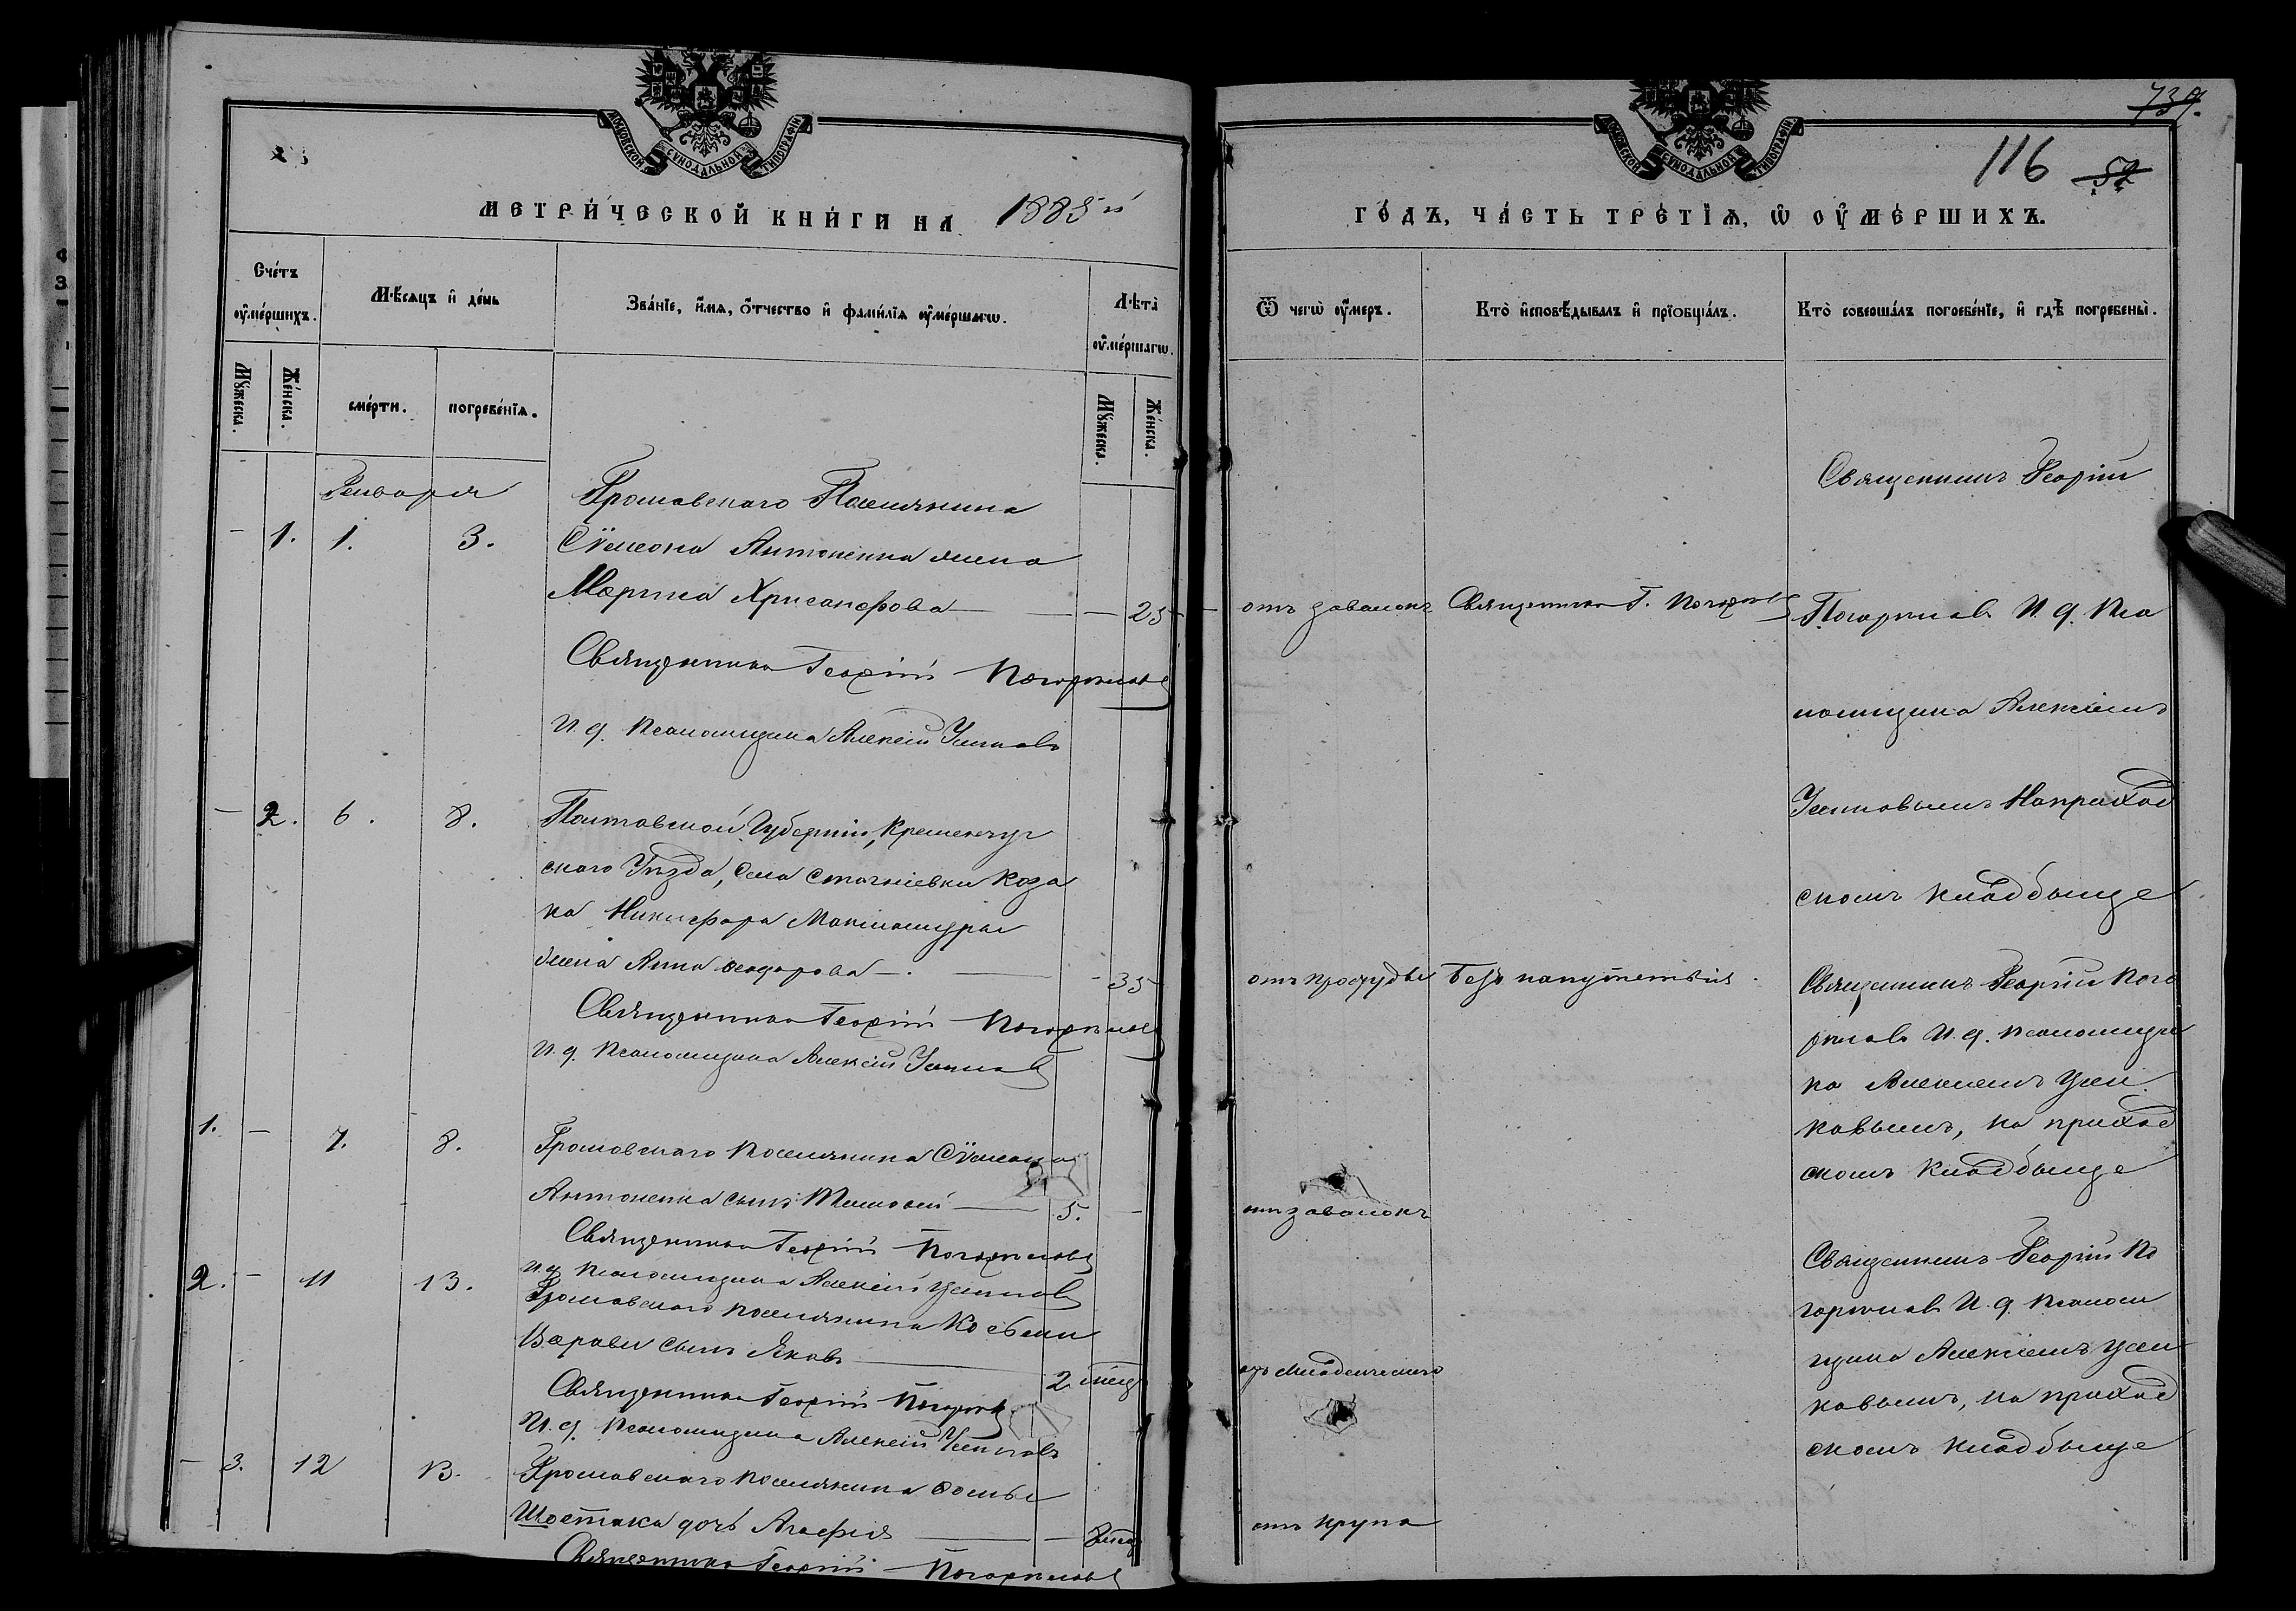 739.
116 52
МОСКОВСКОЙ СѴНОДАЛЬНОЙ ТИПОГРАФІИ
МОСКОВСКОЙ СѴНОДАЛЬНОЙ ТИПОГРАФІИ
МЕТРИ́ЧЕСКОЙ КНИ́ГИ НА 1885й
ГО́ДЪ, ЧА́СТЬ ТРЕ́ТІѦ, Ѡ ОУ҆МЕ́РШИХЪ.
Сче́тъ оу҆ме́ршихъ.
Мѣ́сяцъ и҆ де́нь
Зва́нїе, и҆́мѧ, ѻ҆́тчество и҆ фами́лїѧ оу҆ме́ршагѡ.
Лѣ́та оу҆ме́ршагѡ.
Ѿ чегѡ̀ оу҆́меръ.
Кто̀ и҆сповѣ́дывалъ и҆ прїѻбща́лъ.
Кто̀ соверша́лъ погребе́нїе, и҆ гдѣ̀ погребены̀.
Мꙋ́жеска. Же́нска. сме́рти. погребе́нїѧ. Мꙋ́жеска. Же́нска.
Января
Громовскаго Поселянина
- 1. 1. 3. Сѵмеона Антоненка жена
Марина Хрисанфова — — 25
Священникъ Георгій Погорѣловъ
И. д. Псаломщика Алексій Усиковъ
отъ завалокъ Священникъ Г. Погорѣловъ
Священникъ Георгій
Погорѣловъ И. д. Пса
ломщика Алексіемъ
Усиковымъ На приход
скомъ кладбыще
— 2. 6. 8. Полтавской Губерніи, Кременчуг
скаго Уѣзда, села Козa
ка Никифора
жена Анна Ѳеодорова — 35
Священникъ Георгій Погорѣловъ
И. д. Псаломщика Алексій Усиковъ
отъ простуды Безъ напутствія
Священникъ Георгій Пого
рѣловъ И. д. Псаломщи
ка Алексіемъ Уси
ковымъ, на приход
скомъ кладбыще
1. — 7. 8. Громовскаго поселянина Сѵмеона
Антоненка сынъ Тимофей — 5. —
Священникъ Георгій Погорѣловъ
И. д. Псаломщика Алексій Усиковъ
отъ завалокъ
Священникъ Георгій По
горѣловъ И. д. Псалом
щика Алексіемъ Уси
ковымъ, на приход
скомъ кладбыще
2. — 11 13. Громовскаго поселянина
сынъ Яковъ — 2 мѣс
Священникъ Георгій Погорѣловъ
И. д. Псаломщика Алексій Усиковъ
отъ младенческаго
— 3. 12 13. Громовскаго поселянина Ѳомы
Шостака дочь Агафія — —
Священникъ Георгій Погорѣловъ
отъ крупа